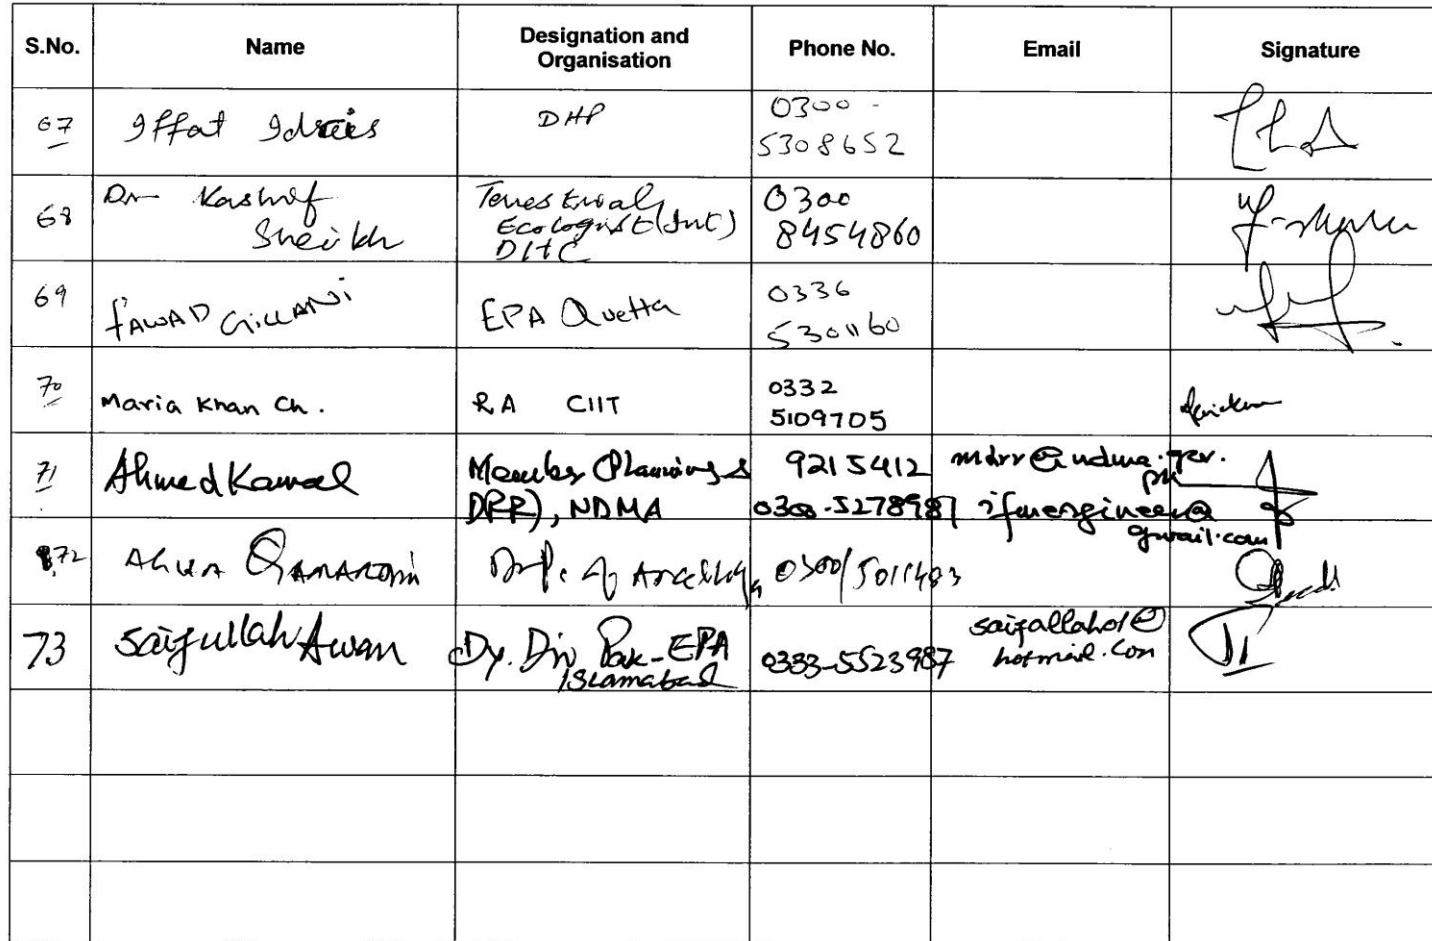 S.No. Name Designation and Organisation Phone No. Email Signature
67 Iffat Idrees DHP 0300 -
5308652
68 Dr Kashif Sheikh Terrestrial Ecologist (Int) 0300
8454860
69 FAWAD GILLANI EPA Quetta 0336
5301160
70 Maria Khan Ch. RA CIIT 0332
5109705
71 Ahmed Kamal Member (Planning & DRR), NDMA 9215412 mdrr@ndma.gov.pk
0300-5278987 ifmengineer@gmail.com
72 0300/5011483
73 Saifullah Awan Dy. Dir Pak-EPA Islamabad 0333-5523987 hotmail.com